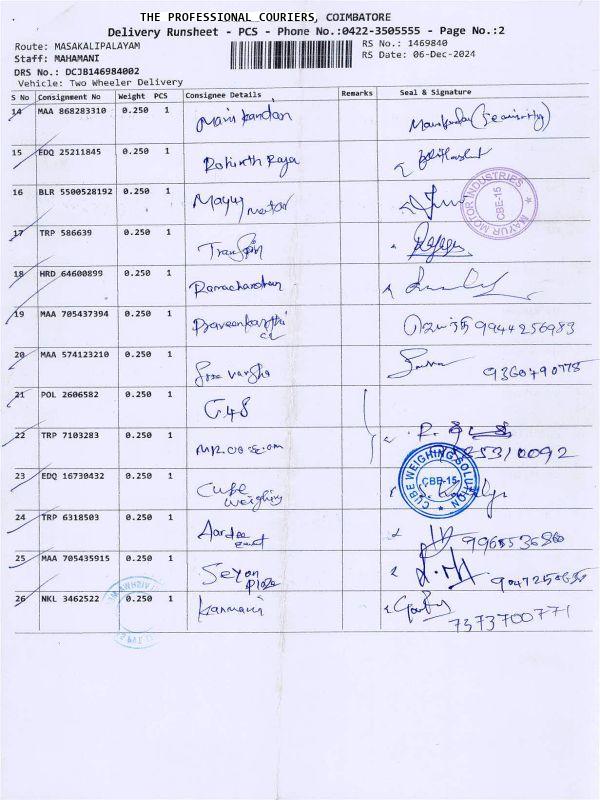 THE PROFESSIONAL COURIERS, COIMBATORE
Delivery Runsheet - PCS - Phone No.:0422-3505555 - Page No.:2
Route: MASAKALIPALAYAM
RS No.: 1469840
Staff: MAHAMANI
RS Date: 06-Dec-2024
DRS No.: DCJB146984002
Vehicle: Two Wheeler Delivery
S No Consignment No Weight PCS Consignee Details Remarks Seal & Signature
14 MAA 868283310 0.250 1 Mani kandan
15 EDQ 25211845 0.250 1 Rohinth Raja
16 BLR 5500528192 0.250 1 Mayur motor
MAYUR MOTOR INDUSTRIES CBE-15
17 TRP 586639 0.250 1
18 HRD 64600899 0.250 1 Ramachandran
19 MAA 705437394 0.250 1 9944256983
20 MAA 574123210 0.250 1 Sree varsha 9360490778
21 POL 2606582 0.250 1
22 TRP 7103283 0.250 1
23 EDQ 16730432 0.250 1 Cube weighing
CUBE WEIGHING SOLUTION CBE-15
24 TRP 6318503 0.250 1
25 MAA 705435915 0.250 1 Seyon
26 NKL 3462522 0.250 1 Kanmani 7373700771